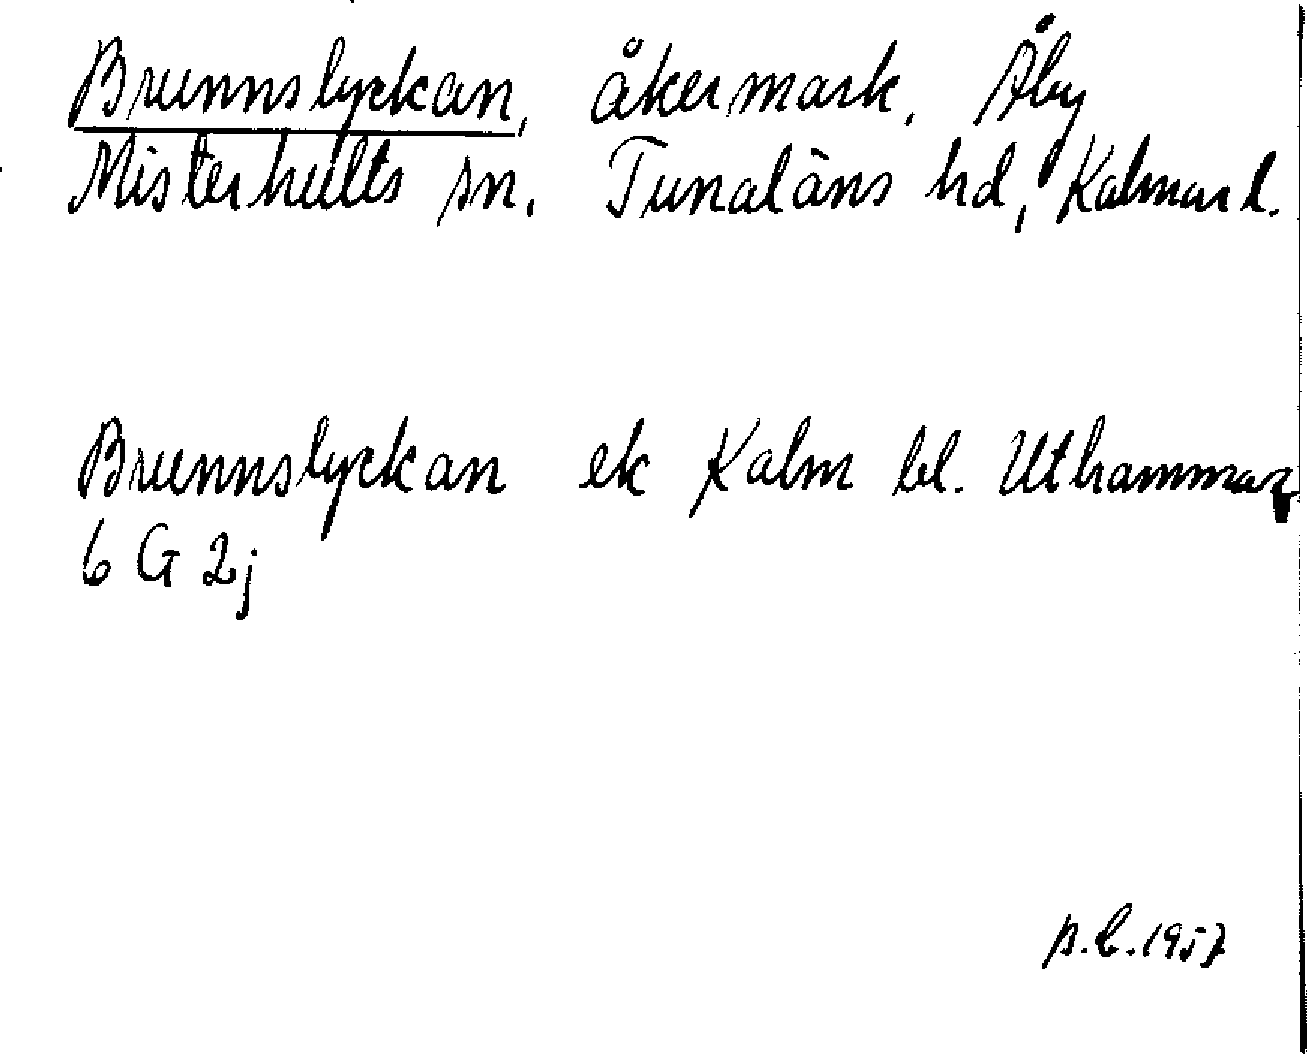 Brunnslyckan, åkermark. Åby
Misterhults sn. Tunaläns hd, Kalmar l.
Brunnslyckan ek Kalm bl. Uthammar,
6 G 2j
p.b. 1957